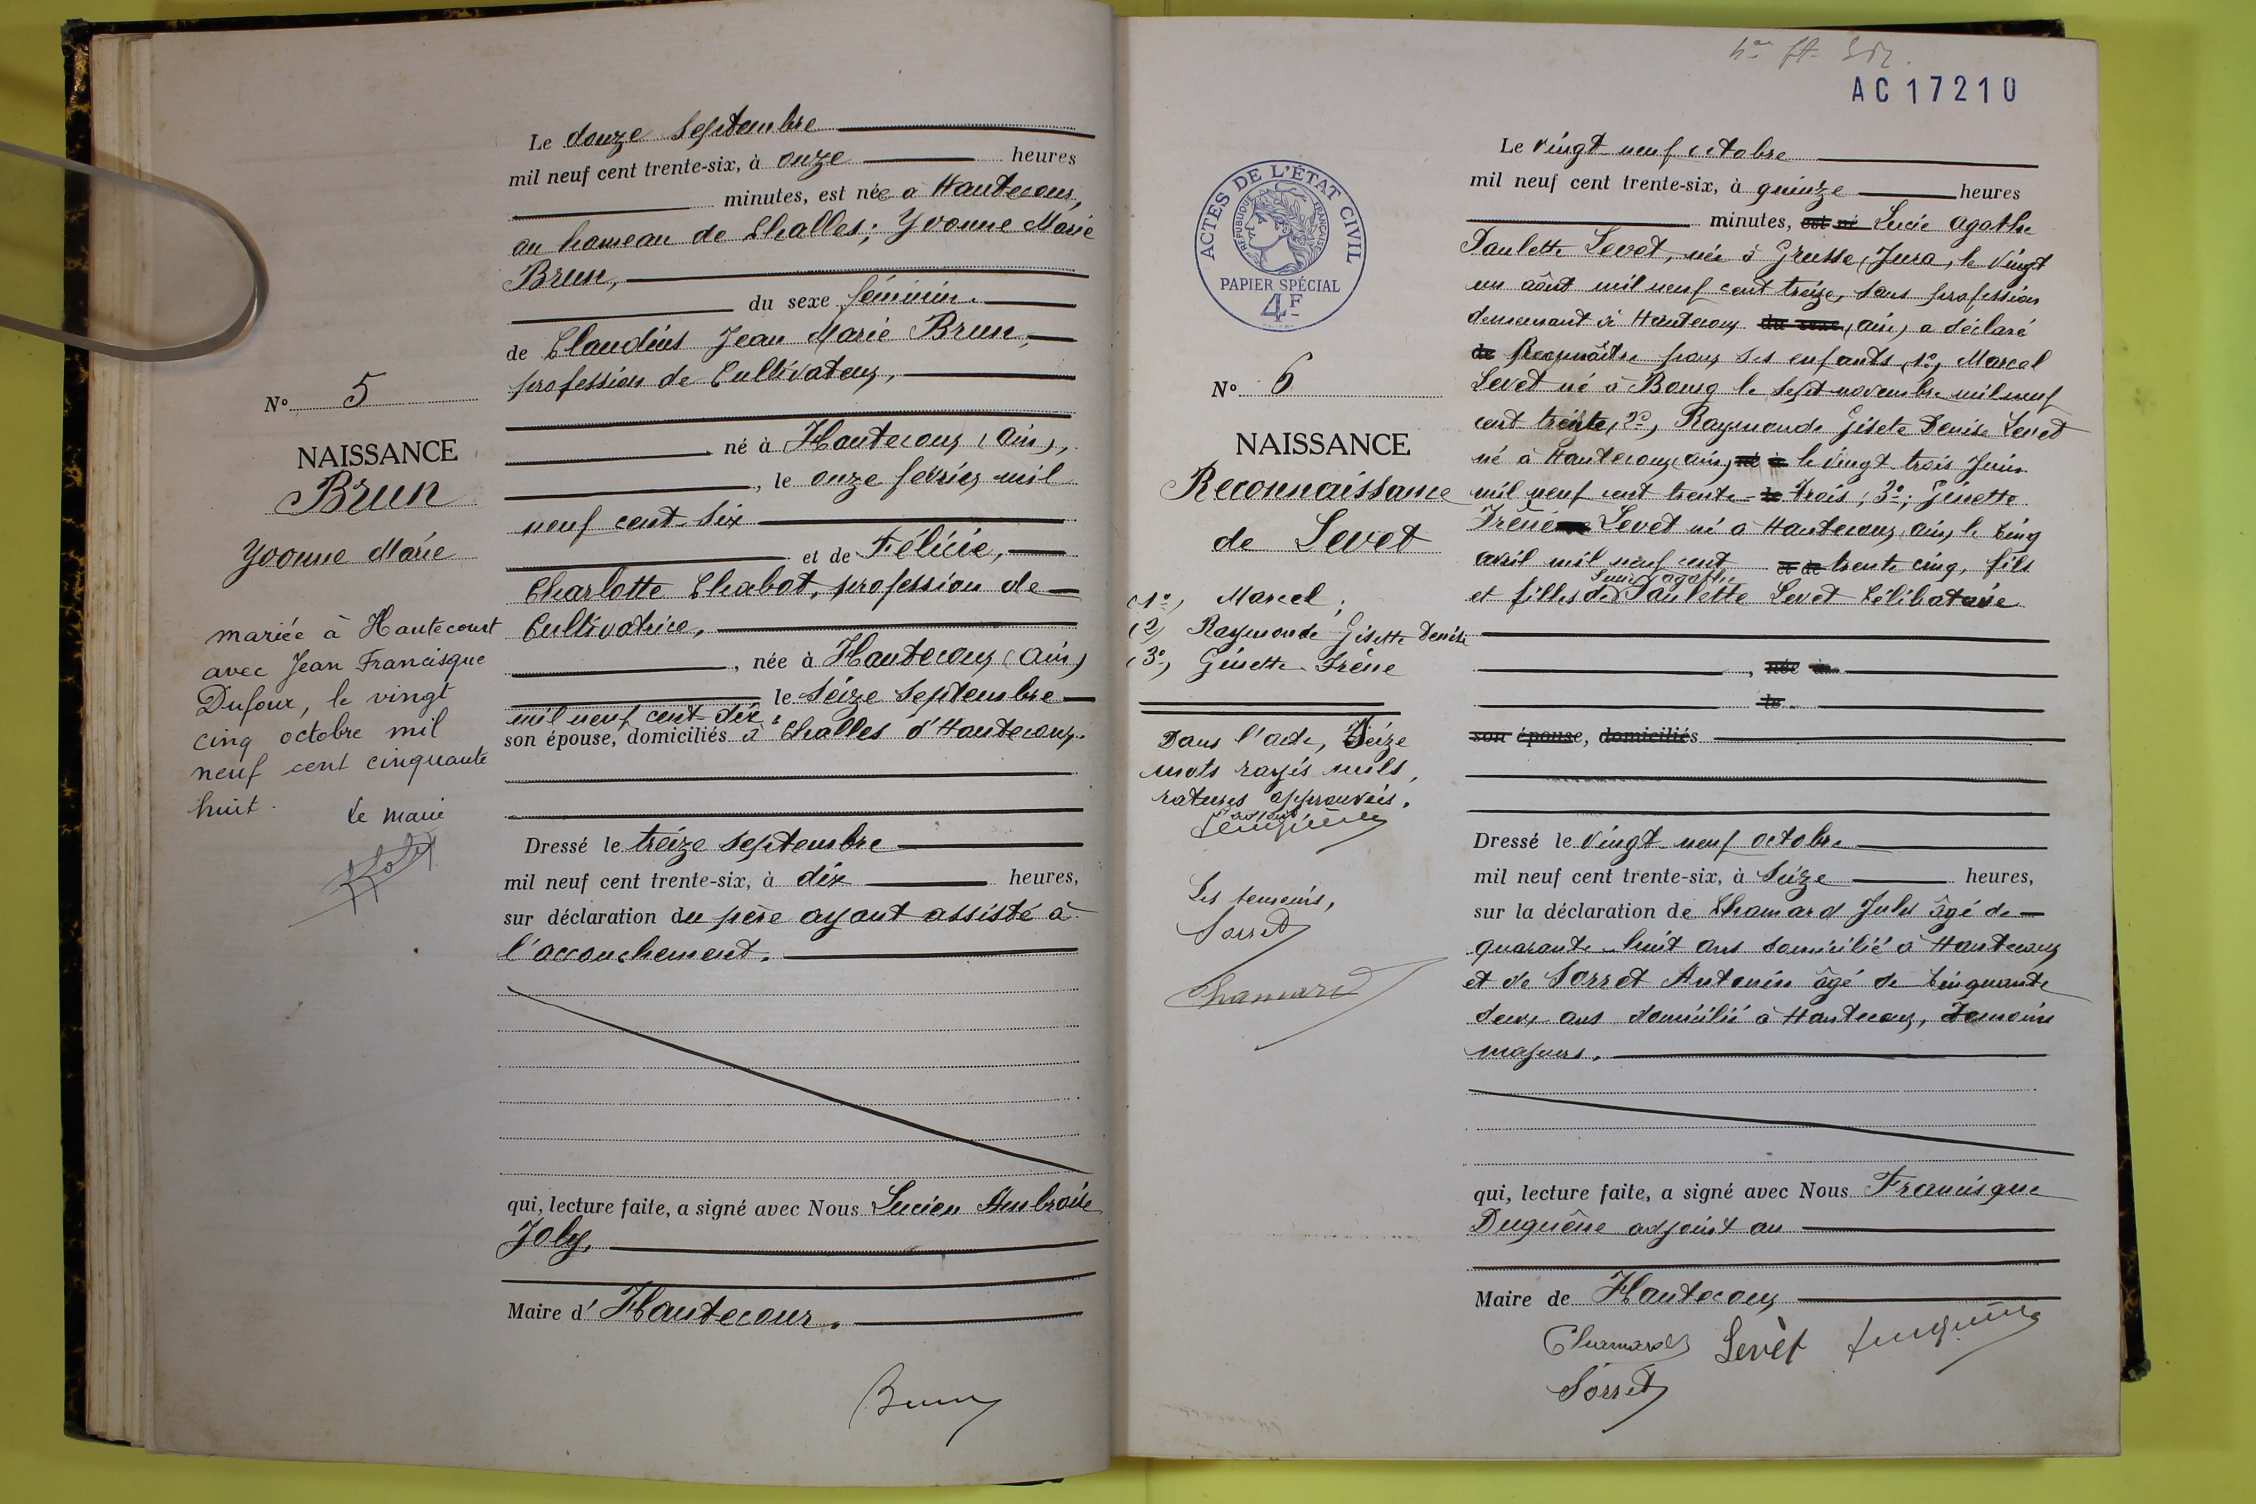 Le douze Septembre
mil neuf cent trente-six, à onze heures
minutes, est née à Hautecour,
au hameau de Challes; Yvonne Marie
Brun,
du sexe féminin.
de Claudius Jean Marie Brun,
profession de Cultivateur,
né à Hautecour (Ain),
, le onze février mil
neuf cent six
et de Félicie,
Charlotte Chabot, profession de
Cultivatrice,
, née à Hautecour (Ain)
le Seize Septembre
mil neuf cent dix,
son épouse, domiciliés à Challes d'Hautecour.
Dressé le treize septembre
mil neuf cent trente-six, à dix heures,
sur déclaration du père ayant assisté à
l'accouchement.
qui, lecture faite, a signé avec Nous Lucien Ambroise
Joly,
Maire d' Hautecour.
Brun
N° 5
NAISSANCE
Brun
Yvonne Marie
mariée à Hautecourt
avec Jean Francisque
Dufour, le vingt
cinq octobre mil
neuf cent cinquante
huit.
Le maire
AC 17210
ACTES DE L'ÉTAT CIVIL
RÉPUBLIQUE FRANÇAISE
PAPIER SPÉCIAL
4F
N° 6
NAISSANCE
Reconnaissance
de Levet
(1°) Marcel;
(2) Raymonde Gisette Denise
(3°) Ginette Irène
Dans l'acte, Seize
mots rayés nuls,
ratures approuvées.
Les temoins,
Sorret
Chamard
Le vingt neuf octobre
mil neuf cent trente-six, à quinze heures
minutes, est né Lucie agathe
Paulette Levet, née à Grusse, Jura, le vingt
un août mil neuf cent treize, sans profession
demeurant à Hautecour du sexe (ain) a déclaré
de Reconnaître pour ses enfants, 1°, Marcel
Levet né à Bourg le sept novembre mil neuf
cent trente, 2°, Raymonde Gisete Denise Levet
né à Hautecour (ain) né à le vingt trois Juin
mil neuf cent trente le trois; 3°; Ginette
Irène Levet né à Hautecour, ain, le cinq
avril mil neuf cent et de trente cinq, fils
Lucie agathe
et filles de Paulette Levet Célibataire
, née à
le
son épouse, domiciliés
Dressé le vingt neuf octobre
mil neuf cent trente-six, à Seize heures,
sur la déclaration de Chamard Jules âgé de
quarante huit ans domicilié à Hautecour
et de Sorret Antonin âgé de Cinquante
deux ans domicilié à Hautecour, Temoins
majeurs.
qui, lecture faite, a signé avec Nous Francisque
Duguêne adjoint au
Maire de Hautecour
Chamard Levet
Sorret